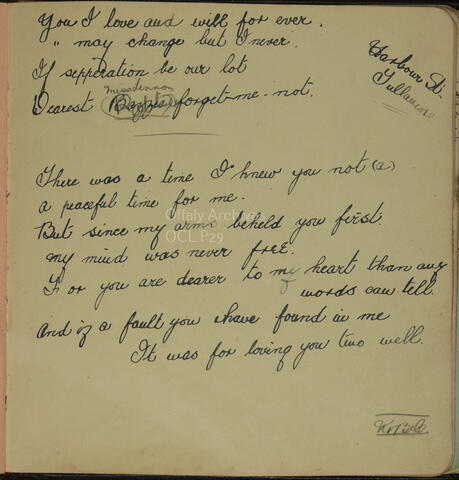 You I love and will for ever.
" may change but I never.
If sepperation be our lot
Miss Lennon
Dearest forget-me-not.
Harbour St.
There was a time I knew you not (2)
a peaceful time for me.
But since my arms beheld you first
my mind was never free.
For you are dearer to my heart than any
words can tell.
and if a fault you have found in me
It was for loving you two well.
Offaly Archives
OCL P29